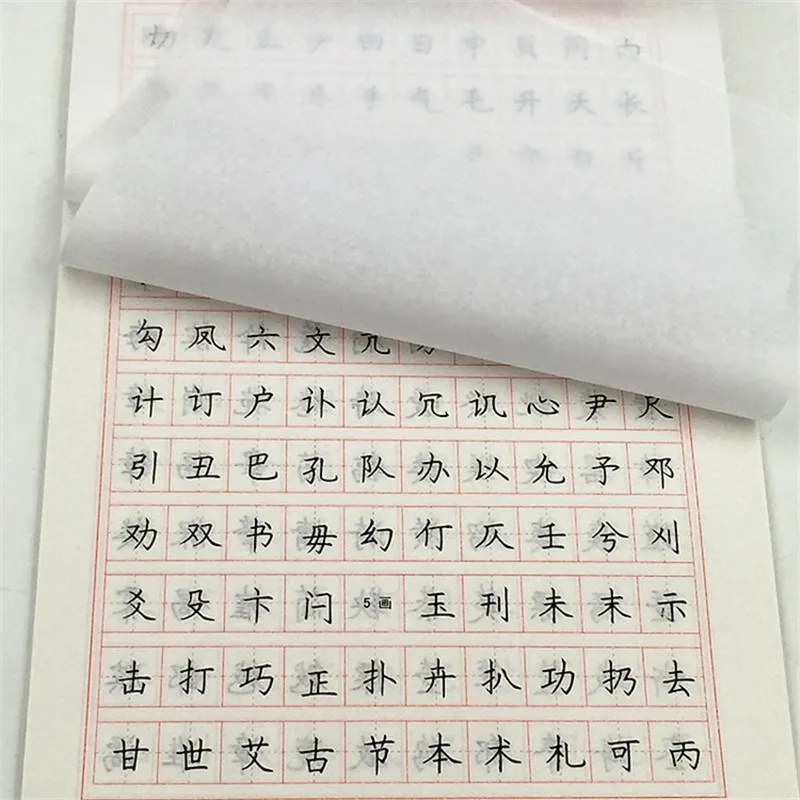 切 止 少 曰 日 中 贝 冈 内
手 气 毛 升 夭 长
勾 凤 六 文 亢 方
计 订 户 讣 认 冗 讥 心 尹 尺
引 丑 巴 孔 队 办 以 允 予 邓
劝 双 书 毋 幻 仃 仄 壬 兮 刈
爻 殳 卞 闩 5画 玉 刊 未 末 示
击 打 巧 正 扑 卉 扒 功 扔 去
甘 世 艾 古 节 本 术 札 可 丙